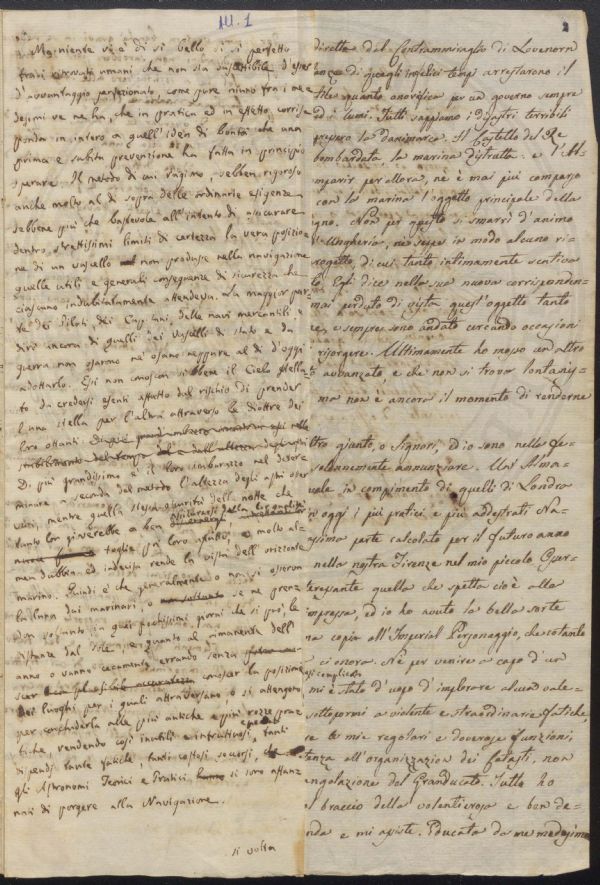 III. 1
2
Ma niente vi è di sì bello, sì perfetto
fra i trovati umani che non sia suscettibile d'esser
d'avvantaggio perfezionato, come pure niuno fra i me
desimi ve ne ha, che in pratica ed in effetto corris
ponda in intero a quell'idea di bontà che una
prima e subita prevenzione ha fatta in principio
sperare. Il metodo di cui
anche molto al di sopra delle ordinarie esigenze
sebbene più che bastevole all'intento di assicurare
dentro strettissimi limiti di certezza la vera posizio
ne di un vascello non produsse nella navigazione
quelle utili e generali conseguenze di sicurezza che
ciascuno indubitatamente attendeva. La maggior par
te dei Piloti, dei Capitani delle navi mercantili e
dirò ancora di quelli dei vascelli di stato e da
guerra non osarono nè osano neppure al dì d'oggi
adottarlo. Essi non conoscon sì bene il Cielo stella
to da credersi esenti affatto dal rischio di prender
l'una stella per l'altra attraverso le diottre dei
loro ottanti.
Di più grandissimo è il loro imbarazzo nel deter
minare a seconda del metodo l'altezza degli astri
, mentre quella stessa oscurità della notte che
tanto lor gioverebbe a ben
toglie in loro affatto, o molto al
men dubbia ed indecisa rende la vista dell'orizzonte
marino. Quindi è che generalmente o non si osservan
la luna dai marinari, o se ne prenon
don soltanto in quei pochissimi giorni che si può le
distanze dal Sole, e quanto al rimanente dell'
anno o vanno ciecamente errando senza
conoscer la posizione
dei luoghi per i quali attraversano o si attengono
per concluderla alle più antiche e più rozze pra
tiche, rendendo così inutili e infruttuosi tanti
dispendi, tante fatiche, tanti costosi soccorsi, che
gli Astronomi Teorici e Pratici si sono affan
nati di porgere alla Navigazione.
si volta
diretta dal Contrammiraglio di Lovenorn
anza di quegli infelici tempi arrestarono il
stile quanto onorifica per un governo sempre
ed i lumi. Tutti sappiamo i disastri terribili
presero la Danimarca. Il Castello del Re
bombardata la marina distrutta. e l'Al-
mparir per allora, nè è mai più comparso
con la marina l'oggetto principale della
gno. Non per questo si smarrì d'animo
l'Ungheria, nè scese in modo alcuno ri-
rogetto, di cui tanto intimamente sentiva
lo. Egli dice nella sua nuova corrisponden-
mai perduto di vista quest'oggetto tanto
re, e sempre sono andato cercando occasioni
risorgere. Ultimamente ho mosso un altro
avvanzato, e che non si trova lontanis-
ma non è ancora il momento di renderne
ltro giunto, o Signori, ed io sono nella fe-
solennemente annunziare. Un Alma-
vale in compimento di quelli di Londra
in oggi i più pratici e più addestrati Na-
ssima parte calcolato per il futuro anno
nella nostra Firenze nel mio piccolo Osser-
teressante quella che spetta cioè alla
impressa, ed io ho avuta la bella sorte
na copia all'Imperial Personaggio, che cotante
e ci onora. Nè per venire a capo d'un
sì complicato
mi è stato d'uopo d'implorare alcun vale-
sottopormi a violente e straordinarie fatiche,
re le mie regolari e doverose funzioni,
tenza all'organizzazion dei Catasti, non
angolazione del Granducato. Tutto ho
l braccio della volenterosa e ben de-
nda e mi assiste. Educata da me medesimo